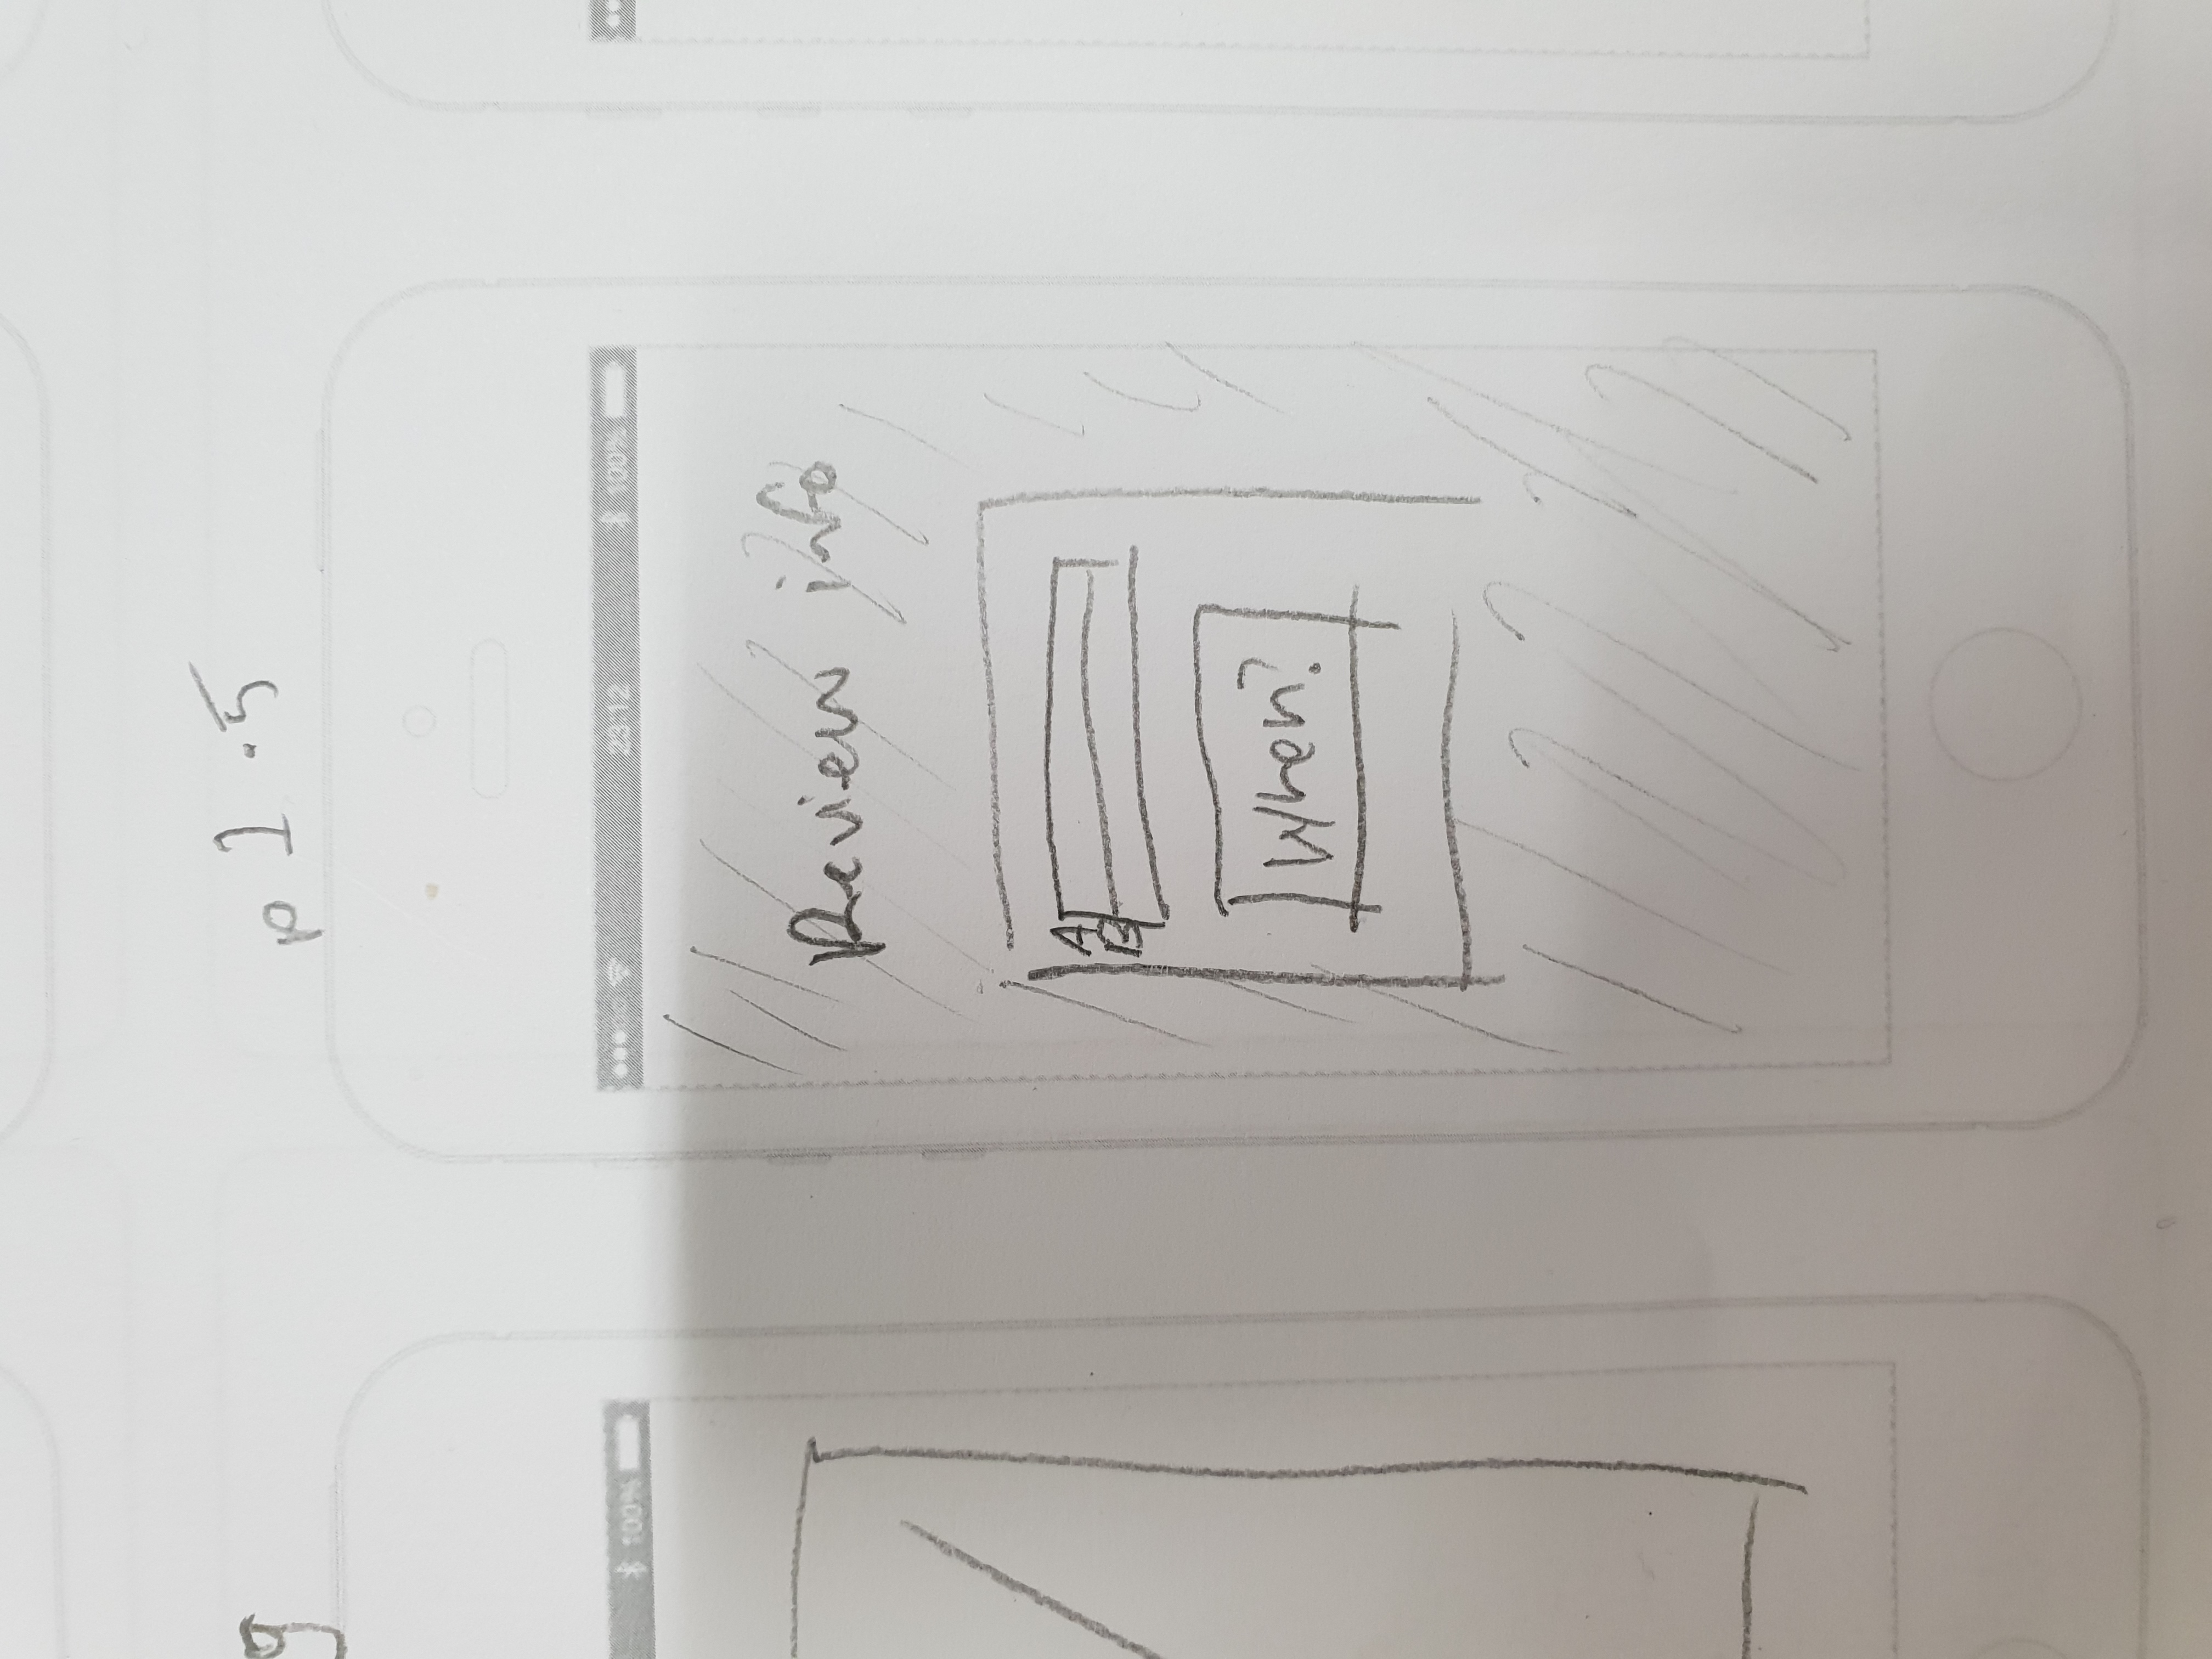 g
p 1.5
100%
23:12 100%
Review info
A
B
When?